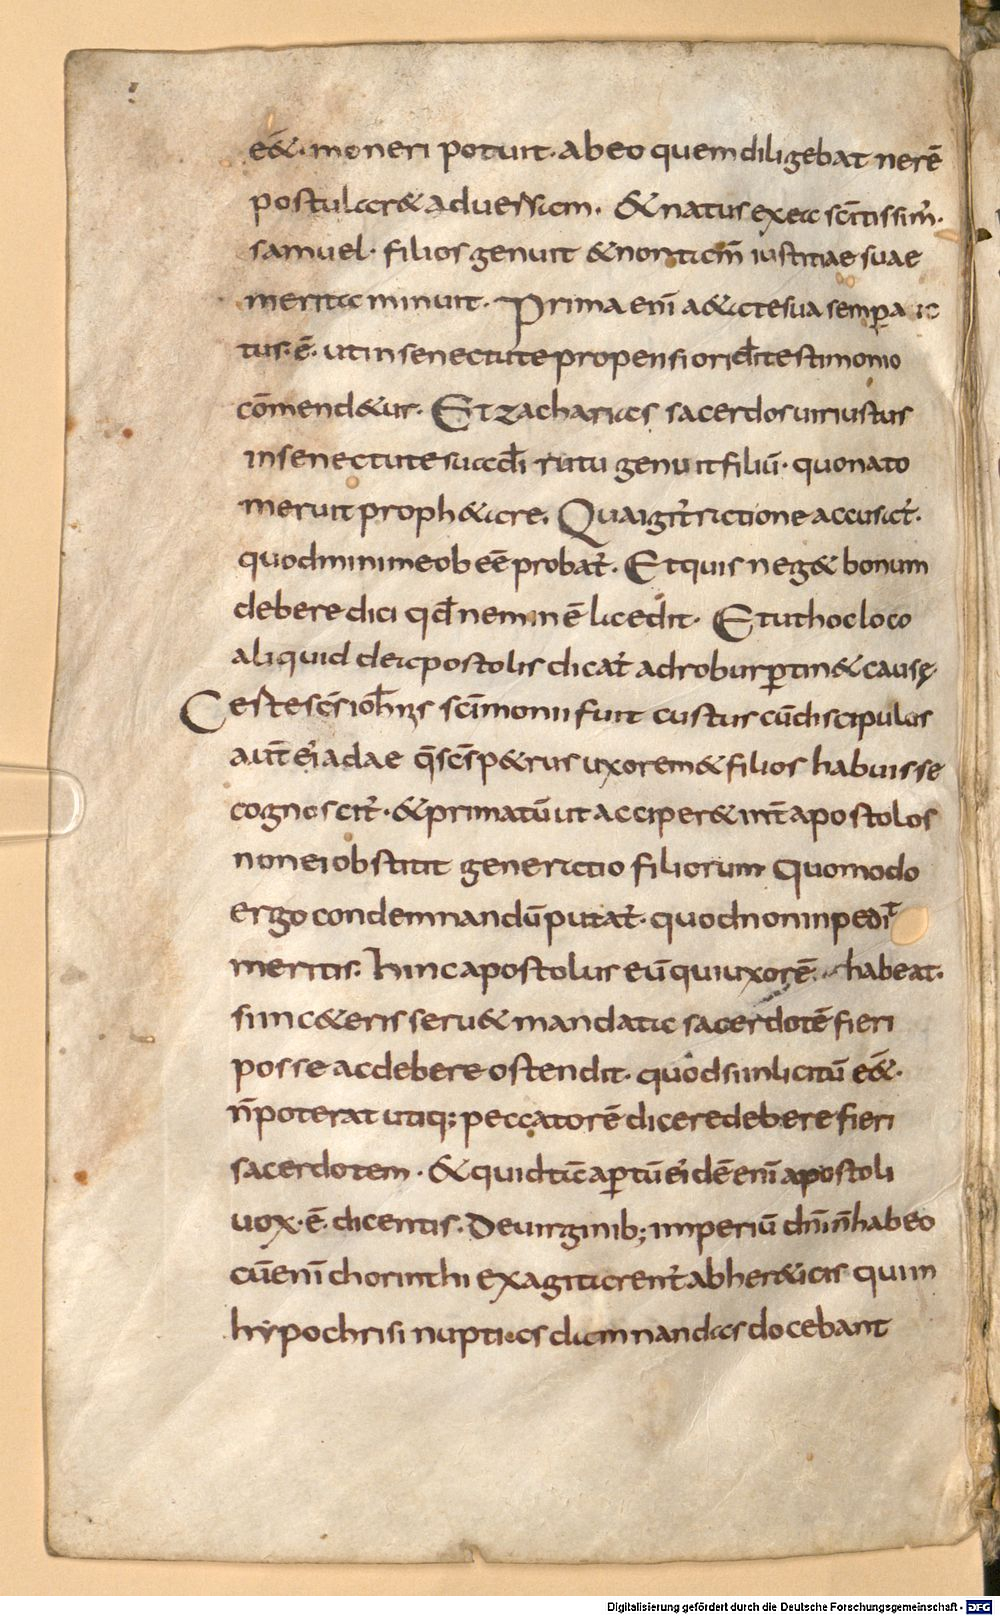 eē&. moneri potuit. abeo quem diligebat ne rē
postular& aduersam. & natus ex ea sc̄tissim̄.
samuel. filios genuit & non tam̄ iustitiae suae
merita minuit. Prima eni̅ a&ate sua semp̲
tus. ē. ut in senectute propensiori d̄i testimonio
cōmend&ur. Et zacharias sacerdos uir iustus
in senectute sua genuit filiū. quo nato
meruit proph&are. Qua igit̄ ratione accusat̄.
quod minime obeē probat̄. Et quis neg& bonum
debere dici qd̄ neminē lædit. Et ut hoc loco
aliquid de apostolis dicat̄ ad robur p̲tin& causę.
Ceste sc̄s ioh̄s sc̄imonii fuit custus cū discipulus
aut̄ ei adae q̄ sc̄s p&rus uxorem & filios habuisse
cognoscit̄. & primatū ut acciper& int̄ apostolos
non ei obstitit generatio filiorum Quomodo
ergo condemnandū putat̄. quod non inpedit
meritis. hinc apostolus eū qui uxorē habeat.
si in c&eris seru& mandata sacerdotē fieri
posse ac debere ostendit. quod si inlicitū eē&.
n̄ poterat utiq; peccatorē dicere debere fieri
sacerdotem. & quid tā ap̲tū ei dē eni̅ apostoli
uox. ē. dicentis. De uirginib; imperiū dn̄i n̄ habeo
cū eni̅ chorinthi exagitarent̄ ab her&icis qui in
hypochrisi nuptias damnandas docebant
Digitalisierung gefördert durch die Deutsche Forschungsgemeinschaft - DFG